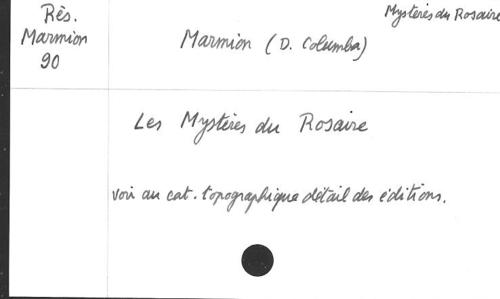 Rés.
Marmion
90
Mystères du Rosaire
Marmion (D. Columba)
Les Mystères du Rosaire
voir au cat. topographique détail des éditions.